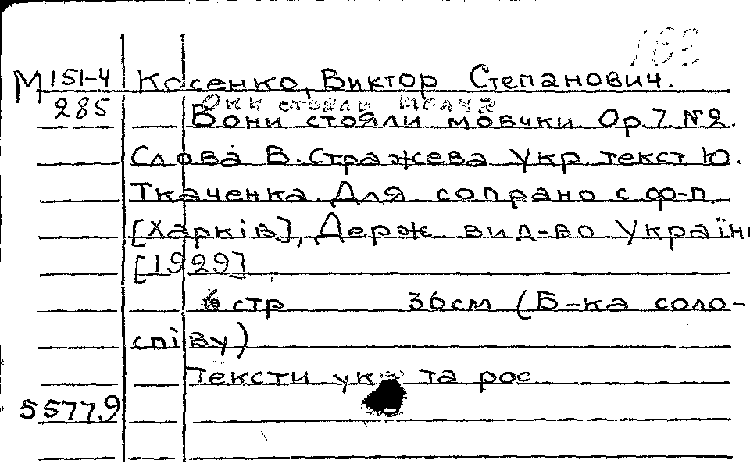 М 151-4 Косенко, Виктор Степанович.
285 Они стояли молча
Вони стояли мовчки Op. 7 №2.
Слова В. Стражева Укр текст Ю.
Ткаченка. Для сопрано с ф-п
[Харкiв], Держ вид-во Україн
[1929]
6 стр 36см (Б-ка соло-
спiву)
Тексти укр та рос
55779